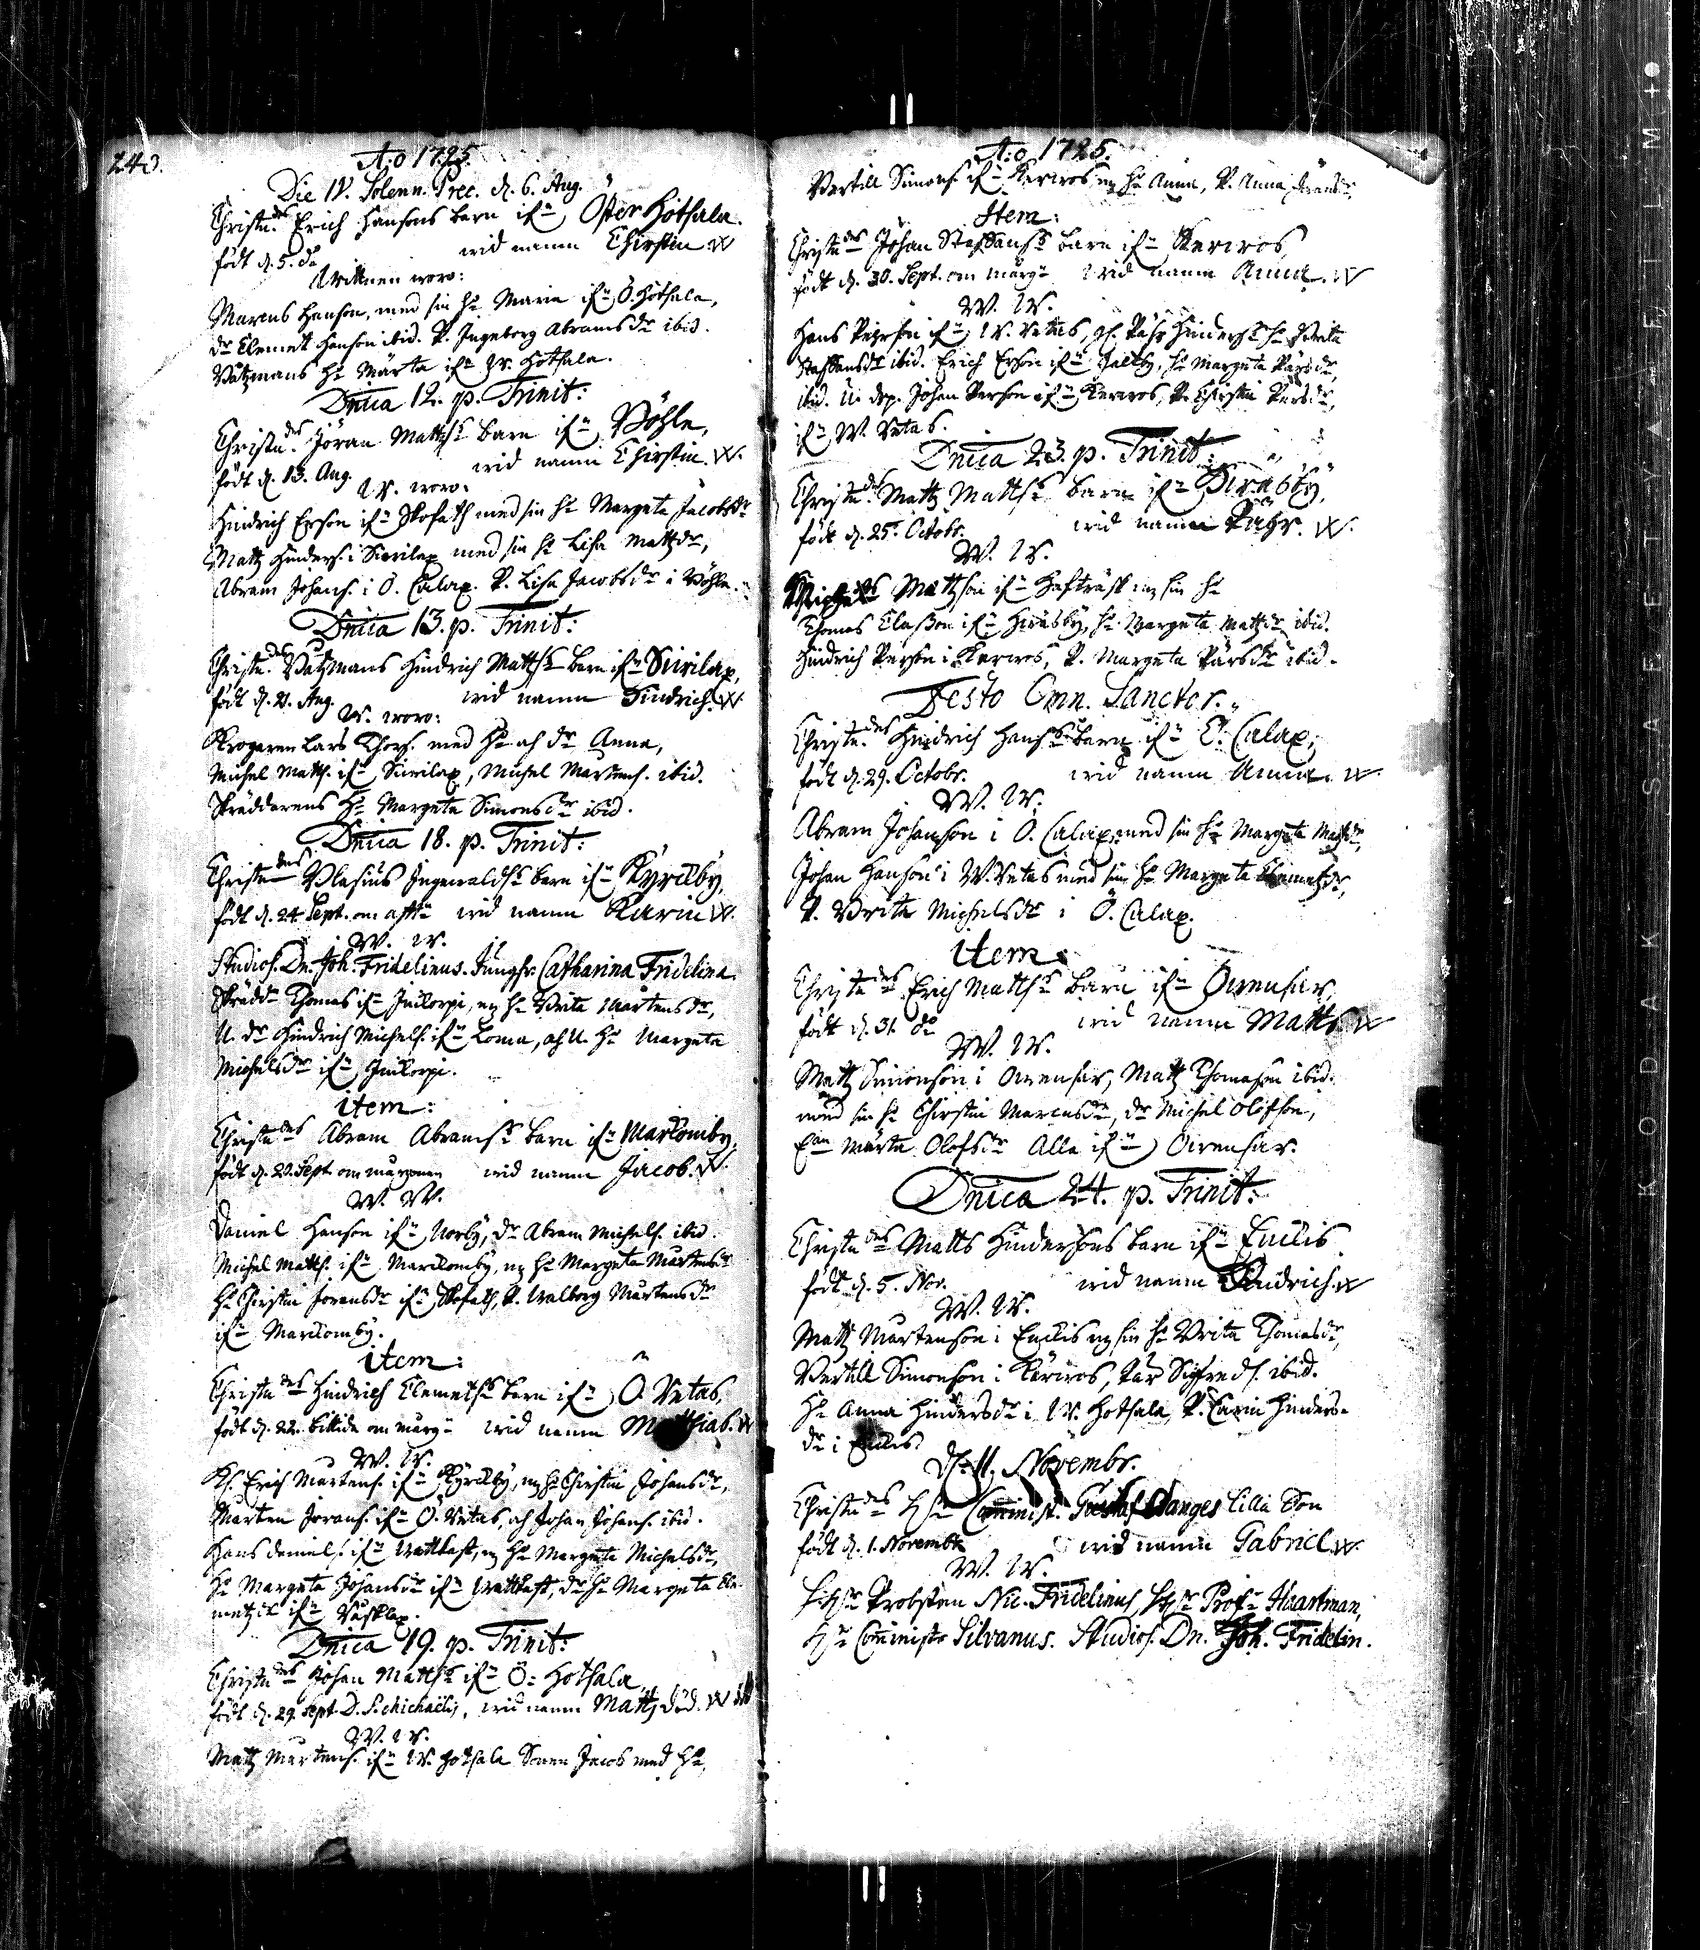 240.
A:o 1725.
Die IV. Solenn. Prec. d. 6. Aug.
Christn.des Erich Hansons barn ifn Öster Hotsala.
född d. 5. do wid namn Chirstin W
Wittnen woro:
Marcus Hanson, med sin ho Maria ifn Ö. Hotsala,
dr Clemet Hanson ibid. P. Ingeborg Abramsdr ibid.
Vatzmans ho Märta ifn W. Hotsala.
Dnica 12. p. Trinit:
Christn.des Jöran Mattss barn ifn Böhle,
född d. 13. Aug. wid namn Chirstin. W.
W. woro:
Hindrich Erson ifn Skofath med sin ho Margeta Jacobsdr
Matz Hinders. i Siwilax med sin ho Lisa Mattzdr,
Abram Johans. i Ö. Calax. P. Lisa Jacobsdr i Böhle.
Dnica 13. p. Trinit:
Christn.des Vatzmans Hindrich Mattss barn ifn Siwilax,
född d. 21. Aug. wid namn Hindrich. W.
W. woro:
Krogaren Lars Thors. med ho och dr Anna,
Michel Matts. ifn Siwilax, Michel Mårtens. ibid.
Skräddarens ho Margeta Simonsdr ibid.
Dnica 18. p. Trinit:
Christndes Blasius Ingewaldss barn ifn Kyrckby,
född d. 24. Sept. om afftn wid namn Karin W.
W. W.
Studios. Dn. Joh. Fridelinus. Jungfr. Catharina Fridelina
Skrädd. Thomas ifn Junkorpi, m ho Brita Mårtensdr,
U. dr Hindrich Michels. ifn Loma, och U. ho Margeta
Michelsdr ifn Junkorpi.
item:
Christndes Abram Abramss barn ifn Marckomby,
född d. 20. Sept. om morgonen wid namn Jacob. W.
W. W.
Daniel Hanson ifn Norby, dr Abram Michels. ibid.
Michel Matts. ifn Marckomby, m ho Margeta Mårtensdr
ho Chirstin Joransdr ifn Skofath, P. Walborg Mårtensdr
ifn Marckomby.
item:
Christndes Hindrich Clemetss barn ifn Ö. Vetas,
född d. 22. om morgn wid namn Matthias. W
W. W.
Kh. Erich Mårtens. ifn Kyrckby, m ho Chirstin Johansdr,
Mårten Jorans. ifn Ö. Vetas, och Johan Johans. ibid.
Hans Daniels. ifn Wattkast, m ho Margeta Michelsdr,
ho Margeta Johansdr ifn Wattkast, dr ho Margeta Cle-
metzdr ifn Wäsklax.
Dnica 19. p. Trinit:
Christndes Johan Mattss ifn Ö: Hotsala,
född d. 29. Sept. D. S. Michaelis, wid namn Mattz död. W
W. W.
Matz Mårtens. ifn W. Hotsala Sonen Jacob med ho,
A:o 1725.
Bertill Simons. ifn Kerwos, m ho Anna, P. Anna
Item:
Christndes Johan Staffanss barn ifn Kerwos,
född d. 30. Sept. om morgn wid namn Anna. W
W. W.
Hans Pehrson ifn W. Vetas, ho Brita
Staffansdr ibid. Erich Erson ifn Jaltby, ho Margeta Pärsdr,
ibid. U. dr. Johan Person ifn Kerwos, P. Chirstin Pärsdr,
ifn W. Vetas.
Dnica 23. p. Trinit:
Christn.des Mattz Mattss barn ifn Hiwäsby,
född d. 25. Octobr. wid namn Påhr. W.
W. W.
Mattson ifn Hafträsk m sin ho
Thomas Classon ifn Hiwäsby, ho Margeta Mattzdr ibid.
Hindrich Person i Kerwos, P. Margeta Pärsdr ibid.
Festo Omn. Sanctor.
Christn.des Hindrich Hanss barn ifn Ö. Calax,
född d. 29. Octobr. wid namn Anna. W.
W. W.
Abram Johanson i Ö. Calax, med sin ho Margeta Mattzdr,
Johan Hanson i W. Vetas med sin ho Margeta Clemetzdr,
P. Brita Michelsdr i Ö. Calax.
item:
Christndes Erich Mattss barn ifn Öwensar,
född d. 31. do wid namn Matts. W
W. W.
Matz Simonson i Öwensar, Matz Thomasson ibid.
med sin ho Chirstin Marcusdr, dr Michel Olofson,
Märta Olofsdr Alla ifn Öwensar.
Dnica 24. p. Trinit:
Christndes Matts Hindersons barn ifn Enckis
född d. 5. Nov. wid namn Hindrich. W
W. W.
Matz Mårtenson i Enckis m sin ho Brita Thomasdr,
Bertill Simonson i Kerwos, Pär Sigfreds. ibid.
ho Anna Hindersdr i W. Hotsala, P. Carin Hinders-
dr i Enckis.
d. 11. Novembr.
Christndes Hr Comminist. Gustaf Wanges lilla Son
född d. 1. Novembr. wid namn Gabriel. W.
W. W.
Hr Probsten Nic. Fridelinus, Hr Prof. Haartman,
Hr Comministr Silvanus. Studios. Dn. Joh. Fridelin.
KODAK SAFETY FILM